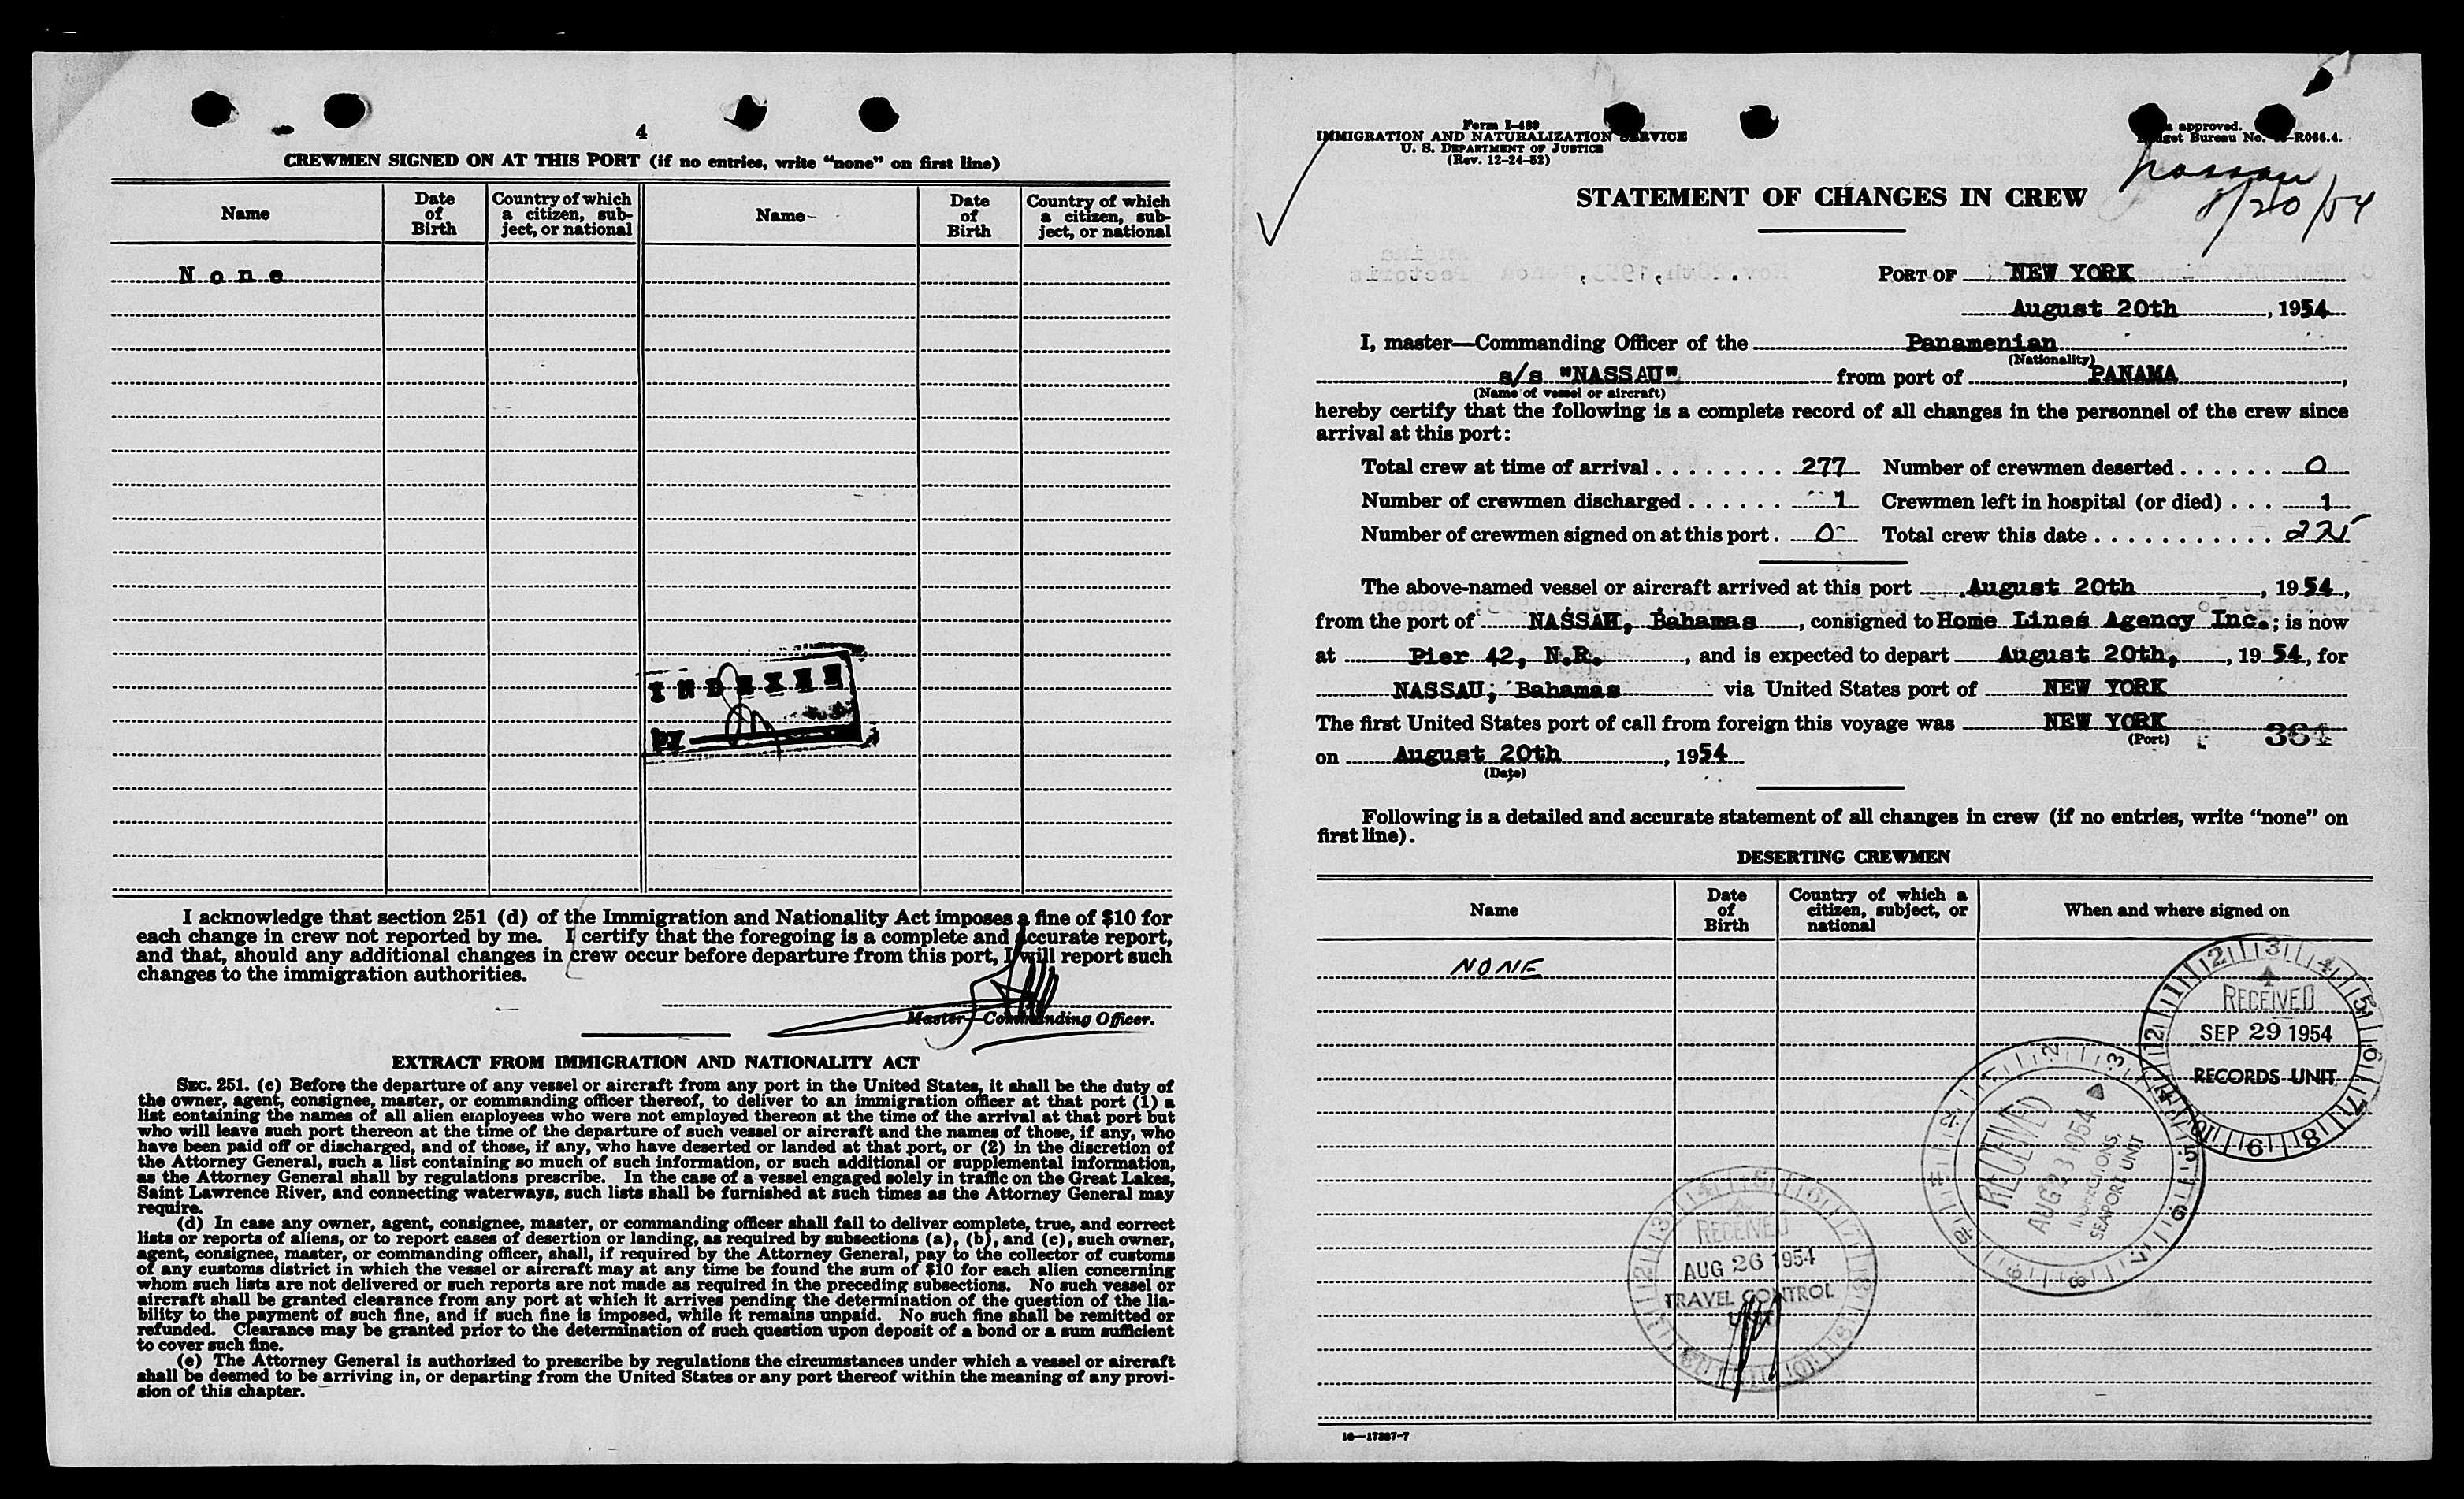 4
CREWMEN SIGNED ON AT THIS PORT (if no entries, write "none" on first line)
Name
Date of Birth
Country of which a citizen, subject, or national
Name
Date of Birth
Country of which a citizen, subject, or national
None
INDEXED
BY
I acknowledge that section 251 (d) of the Immigration and Nationality Act imposes a fine of $10 for
each change in crew not reported by me. I certify that the foregoing is a complete and accurate report,
and that, should any additional changes in crew occur before departure from this port, I will report such
changes to the immigration authorities.
Master—Commanding Officer.
EXTRACT FROM IMMIGRATION AND NATIONALITY ACT
SEC. 251. (c) Before the departure of any vessel or aircraft from any port in the United States, it shall be the duty of
the owner, agent, consignee, master, or commanding officer thereof, to deliver to an immigration officer at that port (1) a
list containing the names of all alien employees who were not employed thereon at the time of the arrival at that port but
who will leave such port thereon at the time of the departure of such vessel or aircraft and the names of those, if any, who
have been paid off or discharged, and of those, if any, who have deserted or landed at that port, or (2) in the discretion of
the Attorney General, such a list containing so much of such information, or such additional or supplemental information,
as the Attorney General shall by regulations prescribe. In the case of a vessel engaged solely in traffic on the Great Lakes,
Saint Lawrence River, and connecting waterways, such lists shall be furnished at such times as the Attorney General may
require.
(d) In case any owner, agent, consignee, master, or commanding officer shall fail to deliver complete, true, and correct
lists or reports of aliens, or to report cases of desertion or landing, as required by subsections (a), (b), and (c), such owner,
agent, consignee, master, or commanding officer, shall, if required by the Attorney General, pay to the collector of customs
of any customs district in which the vessel or aircraft may at any time be found the sum of $10 for each alien concerning
whom such lists are not delivered or such reports are not made as required in the preceding subsections. No such vessel or
aircraft shall be granted clearance from any port at which it arrives pending the determination of the question of the lia-
bility to the payment of such fine, and if such fine is imposed, while it remains unpaid. No such fine shall be remitted or
refunded. Clearance may be granted prior to the determination of such question upon deposit of a bond or a sum sufficient
to cover such fine.
(e) The Attorney General is authorized to prescribe by regulations the circumstances under which a vessel or aircraft
shall be deemed to be arriving in, or departing from the United States or any port thereof within the meaning of any provi-
sion of this chapter.
Form I-489
IMMIGRATION AND NATURALIZATION SERVICE
U. S. DEPARTMENT OF JUSTICE
(Rev. 12-24-52)
approved.
Budget Bureau No. -R066.4.
Nassau
8/20/54
STATEMENT OF CHANGES IN CREW
PORT OF NEW YORK
August 20th, 1954
I, master—Commanding Officer of the Panamenian
(Nationality)
s/s "NASSAU" from port of PANAMA,
(Name of vessel or aircraft)
hereby certify that the following is a complete record of all changes in the personnel of the crew since
arrival at this port:
Total crew at time of arrival . . . . . . . . 277 Number of crewmen deserted . . . . . . 0
Number of crewmen discharged . . . . . . 1 Crewmen left in hospital (or died) . . . 1
Number of crewmen signed on at this port . 0 Total crew this date . . . . . . . . . . . 225
The above-named vessel or aircraft arrived at this port August 20th, 1954,
from the port of NASSAU, Bahamas, consigned to Home Lines Agency Inc.; is now
at Pier 42, N.R., and is expected to depart August 20th, 1954, for
NASSAU, Bahamas via United States port of NEW YORK
The first United States port of call from foreign this voyage was NEW YORK
(Port)
364
on August 20th, 1954
(Date)
Following is a detailed and accurate statement of all changes in crew (if no entries, write "none" on
first line).
DESERTING CREWMEN
Name
Date of Birth
Country of which a citizen, subject, or national
When and where signed on
NONE
RECEIVED
SEP 29 1954
RECORDS UNIT
RECEIVED
AUG 23 1954
INSPECTIONS,
SEAPORT UNIT
RECEIVED
AUG 26 1954
TRAVEL CONTROL
UNIT
16—17387-7